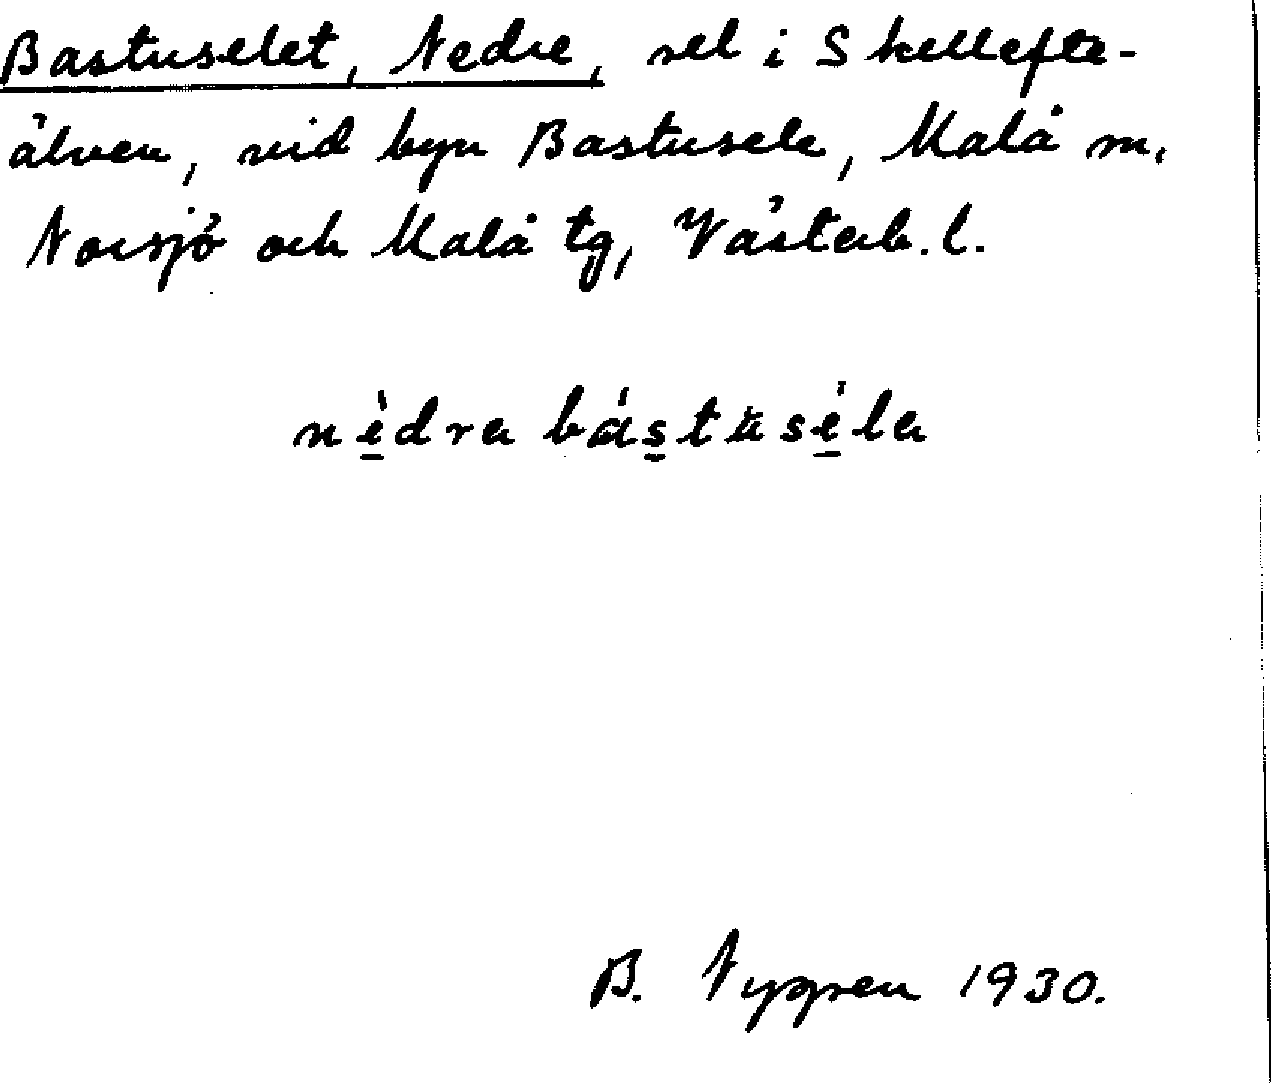 Bastuselet, Nedre, sel i Skellefte-
älven, vid byn Bastusele, Malå m.
Norsjö och Malå tg, Västerb. l.
nèdra bástŭséla
B. Nygren 1930.